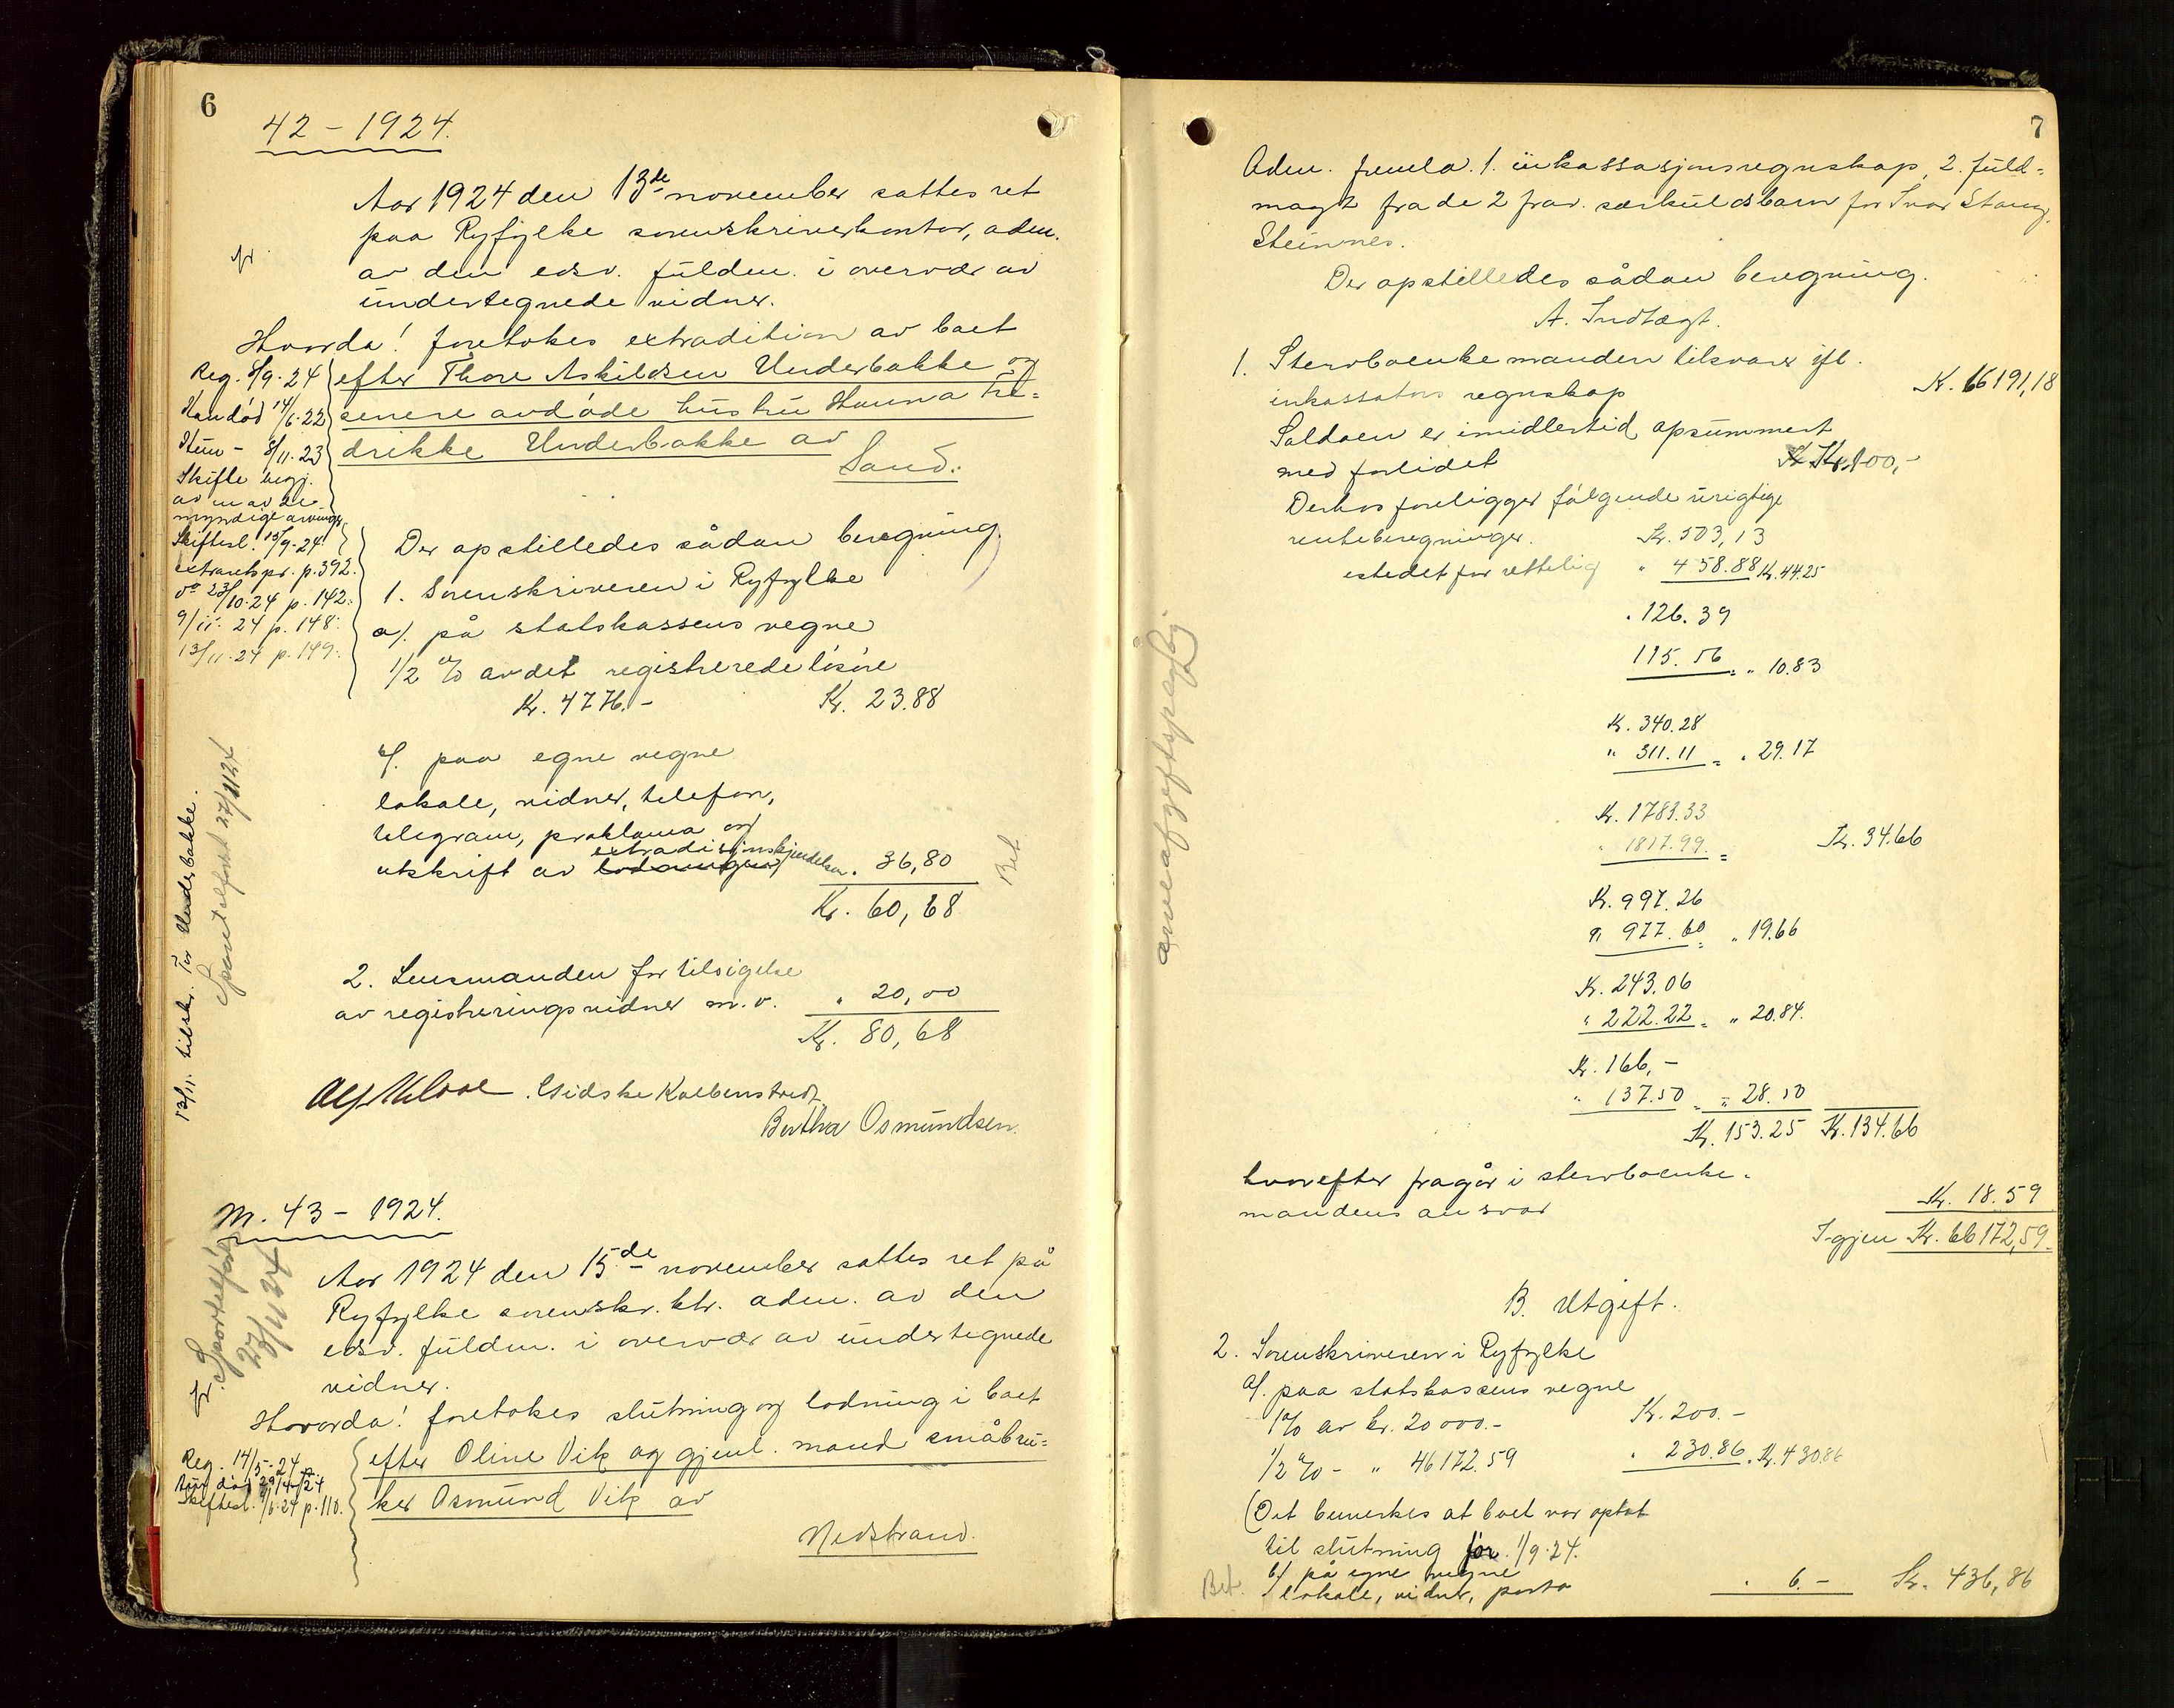 6
42 - 1924.
Aar 1924 den 13de november sattes ret
paa Ryfylke sorenskriverkontor, adm.
av den edsv. fuldm. i overvær av
undertegnede vidner.
Hvorda! foretokes extradition av boet
efter Thore Askildsen Underbakke og
senere avdøde hustru Hanna Fre=
drikke Underbakke av
Sand.
Reg. 8/9-24
Man død 14/6-22
Hun - 8/11-23
Skifte begj.
av
myndige arvinger
Skiftesl. 15/9-24
extraretspr. p. 392.
do 23/10-24 p. 142.
9/11-24 p. 148.
13/11-24 p. 149.
Der opstilledes sådan beregning.
1. Sorenskriveren i Ryfylke
a/. på statskassens vegne
1/2 % av det registrerede løsøre
Kr. 4776.- Kr. 23.88
b/. paa egne vegne
lokale, vidner, telefon,
telegram, proklama og
extradisjonskjendelser
utskrift av lodninger . 36,80
Kr. 60,68
Bet
2. Lensmanden for tilsigelse
av registreringsvidner m.v. " 20,00
Kr. 80,68
Gidske Kolbenstvedt
Bertha Osmundsen.
13/11. tilskr. Tor Underbakke.
Sportelført 27/11 24
M. 43 - 1924.
Sportelført
27/11 24
Aar 1924 den 15de november sattes ret på
Ryfylke sorenskr. ktr. adm. av den
edsv. fuldm. i overvær av undertegnede
vidner.
Hvorda! foretokes slutning og lodning i boet
efter Oline Vik og gjenl. mand småbru=
ker Osmund Vik av
Nedstrand.
Reg. 14/5-24
Hun død 29/4-24
Skiftesl. 2/6-24 p. 110.
7
Adm. fremla. 1. inkassasjonsregnskap, 2. fuld=
magt fra de 2 frav. særkuldsbarn for Ivar Stang
Steinnes.
Der opstilledes sådan beregning.
A. Indtægt.
1. Stervboenkemanden tilsvarer ifl.
inkassators regnskap K. 66191,18
Saldoen er imidlertid opsummert
med forlidet Kr. 100,-
Derhos foreligger følgende urigtige
renteberegninger. Kr. 503,13
istedet for rettelig " 458.88 Kr. 44.25
. 126.39
115.56 = " 10.83
Kr. 340.28
" 311.11 = . 29.17
Kr. 1783.33
" 1817.99. = Kr. 34.66
Kr. 997.26
" 977.60 = " 19.66
Kr. 243.06
" 222.22 = " 20.84.
Kr. 166,-
" 137.50 = " 28.50
Kr. 153.25 Kr. 134.66
hvorefter fragår i stervboenke-
mandens ansvar Kr. 18.59
Igjen Kr. 66172,59.
B. Utgift.
2. Sorenskriveren i Ryfylke
a/. paa statskassens vegne
1% av kr. 20000.- Kr. 200.-
1/2 % - " 46172.59 " 230.86. Kr. 430.86
(Det bemerkes at boet var optat
til slutning før 1/9-24.
b/ på egne vegne
Bet. lokale, vidner, porto " 6.- Kr. 436,86
arveafgiftspligtig.